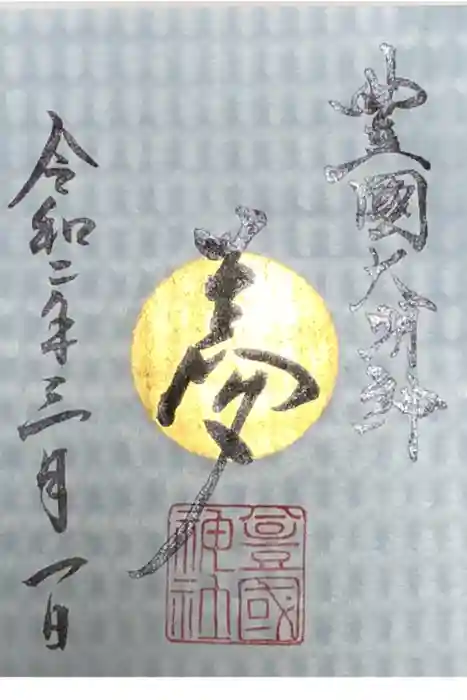 豊國大明神
夢
豊國神社
令和二年三月一日